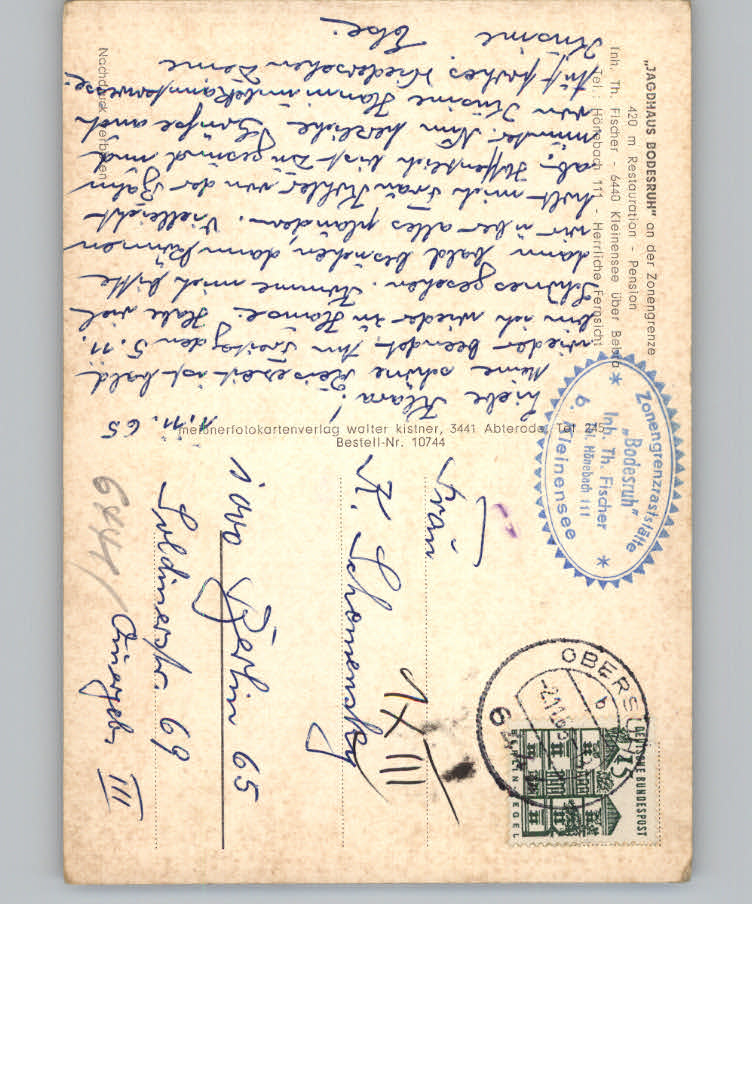 „JAGDHAUS BODESRUH" an der Zonengrenze
420 m Restauration - Pension
Inh. Th. Fischer - 6440 Kleinensee über Bebra
Tel.: Hönebach 111 - Herrliche Fernsicht
Nachdruck verboten
meißnerfotokartenverlag walter kistner, 3441 Abterode, Tel. 245
Bestell-Nr. 10744
1.11.65
Liebe Klara!
Meine schöne Reisezeit ist bald
wieder beendet. Am Freitag den 5.11.
bin ich wieder zu Hause. Habe viel
Schönes gesehen. Komme mich bitte
dann bald besuchen, dann können
wir über alles plaudern. Vielleicht
holt mich Frau Köhler von der Bahn
ab. Hoffentlich bist Du gesund und
munter. Nun herzliche Grüße auch
von Kusine Hanni unbekannterweise.
Auf frohes Wiedersehen Deine
Kusine Else.
Zonengrenzraststätte
„Bodesruh"
Inh. Th. Fischer
Tel. Hönebach 111
Kleinensee
Frau
K. Schomensky
1 XIII
1000 Berlin 65
Soldinerstr. 69
Quergeb. III
644/
OBERSUHL
b
-2.11.65
DEUTSCHE BUNDESPOST
15
BERLIN TEGEL